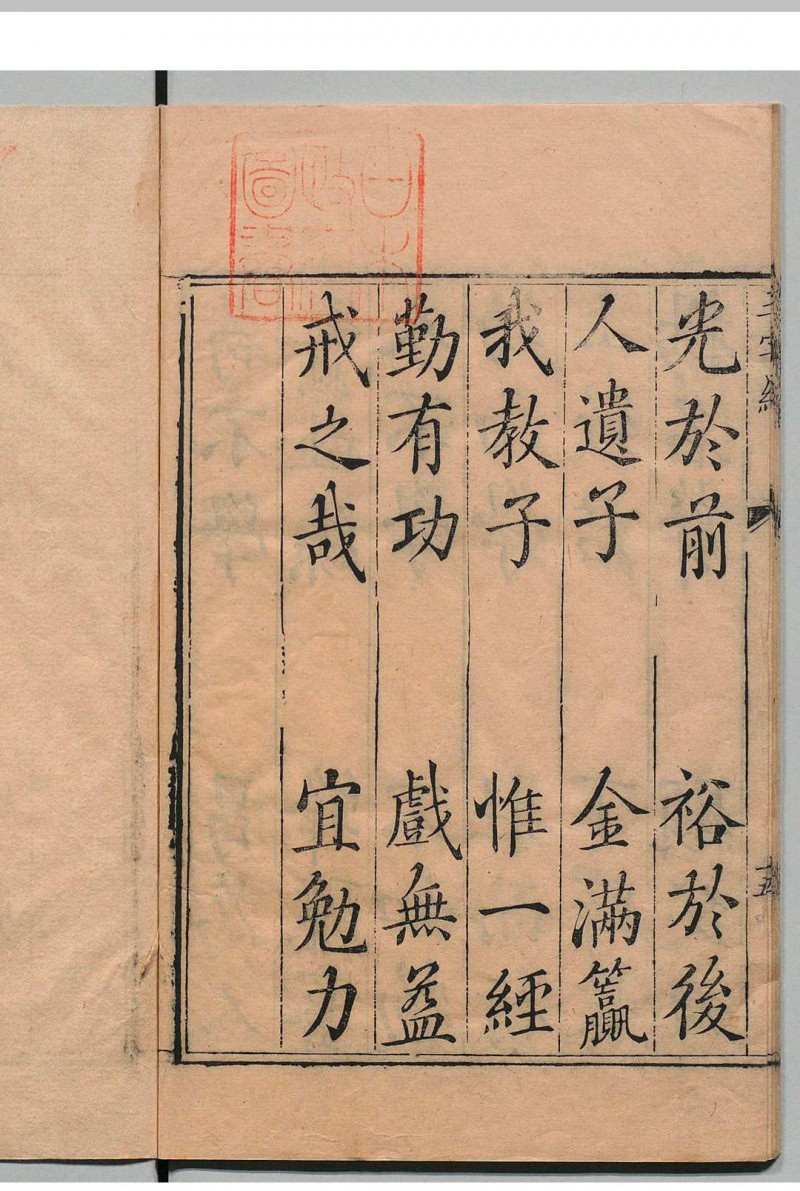 光於前 裕於後
人遺子 金滿籯
我教子 惟一經
勤有功 戲無益
戒之哉 宜勉力
三字經
五